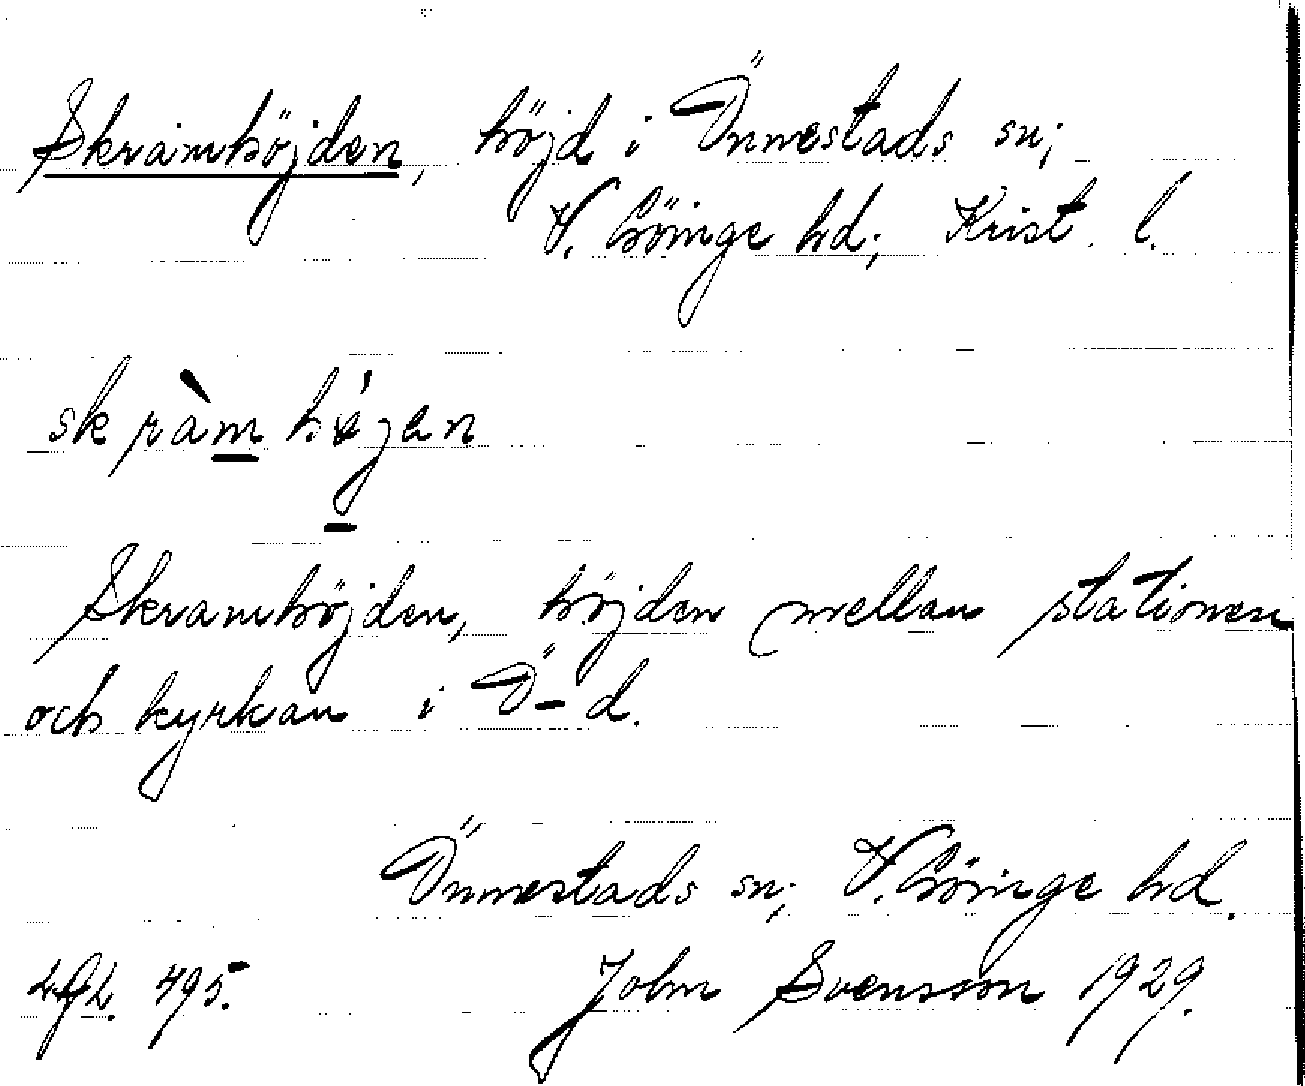 Skramhöjden, höjd i Önnestads sn;
V. Göinge hd; Krist. l.
skràmhǿjen
Skramhöjden, höjden mellan stationen
och kyrkan i Ö-d.
Önnestads sn; V. Göinge hd.
495. John Svensson 1929.